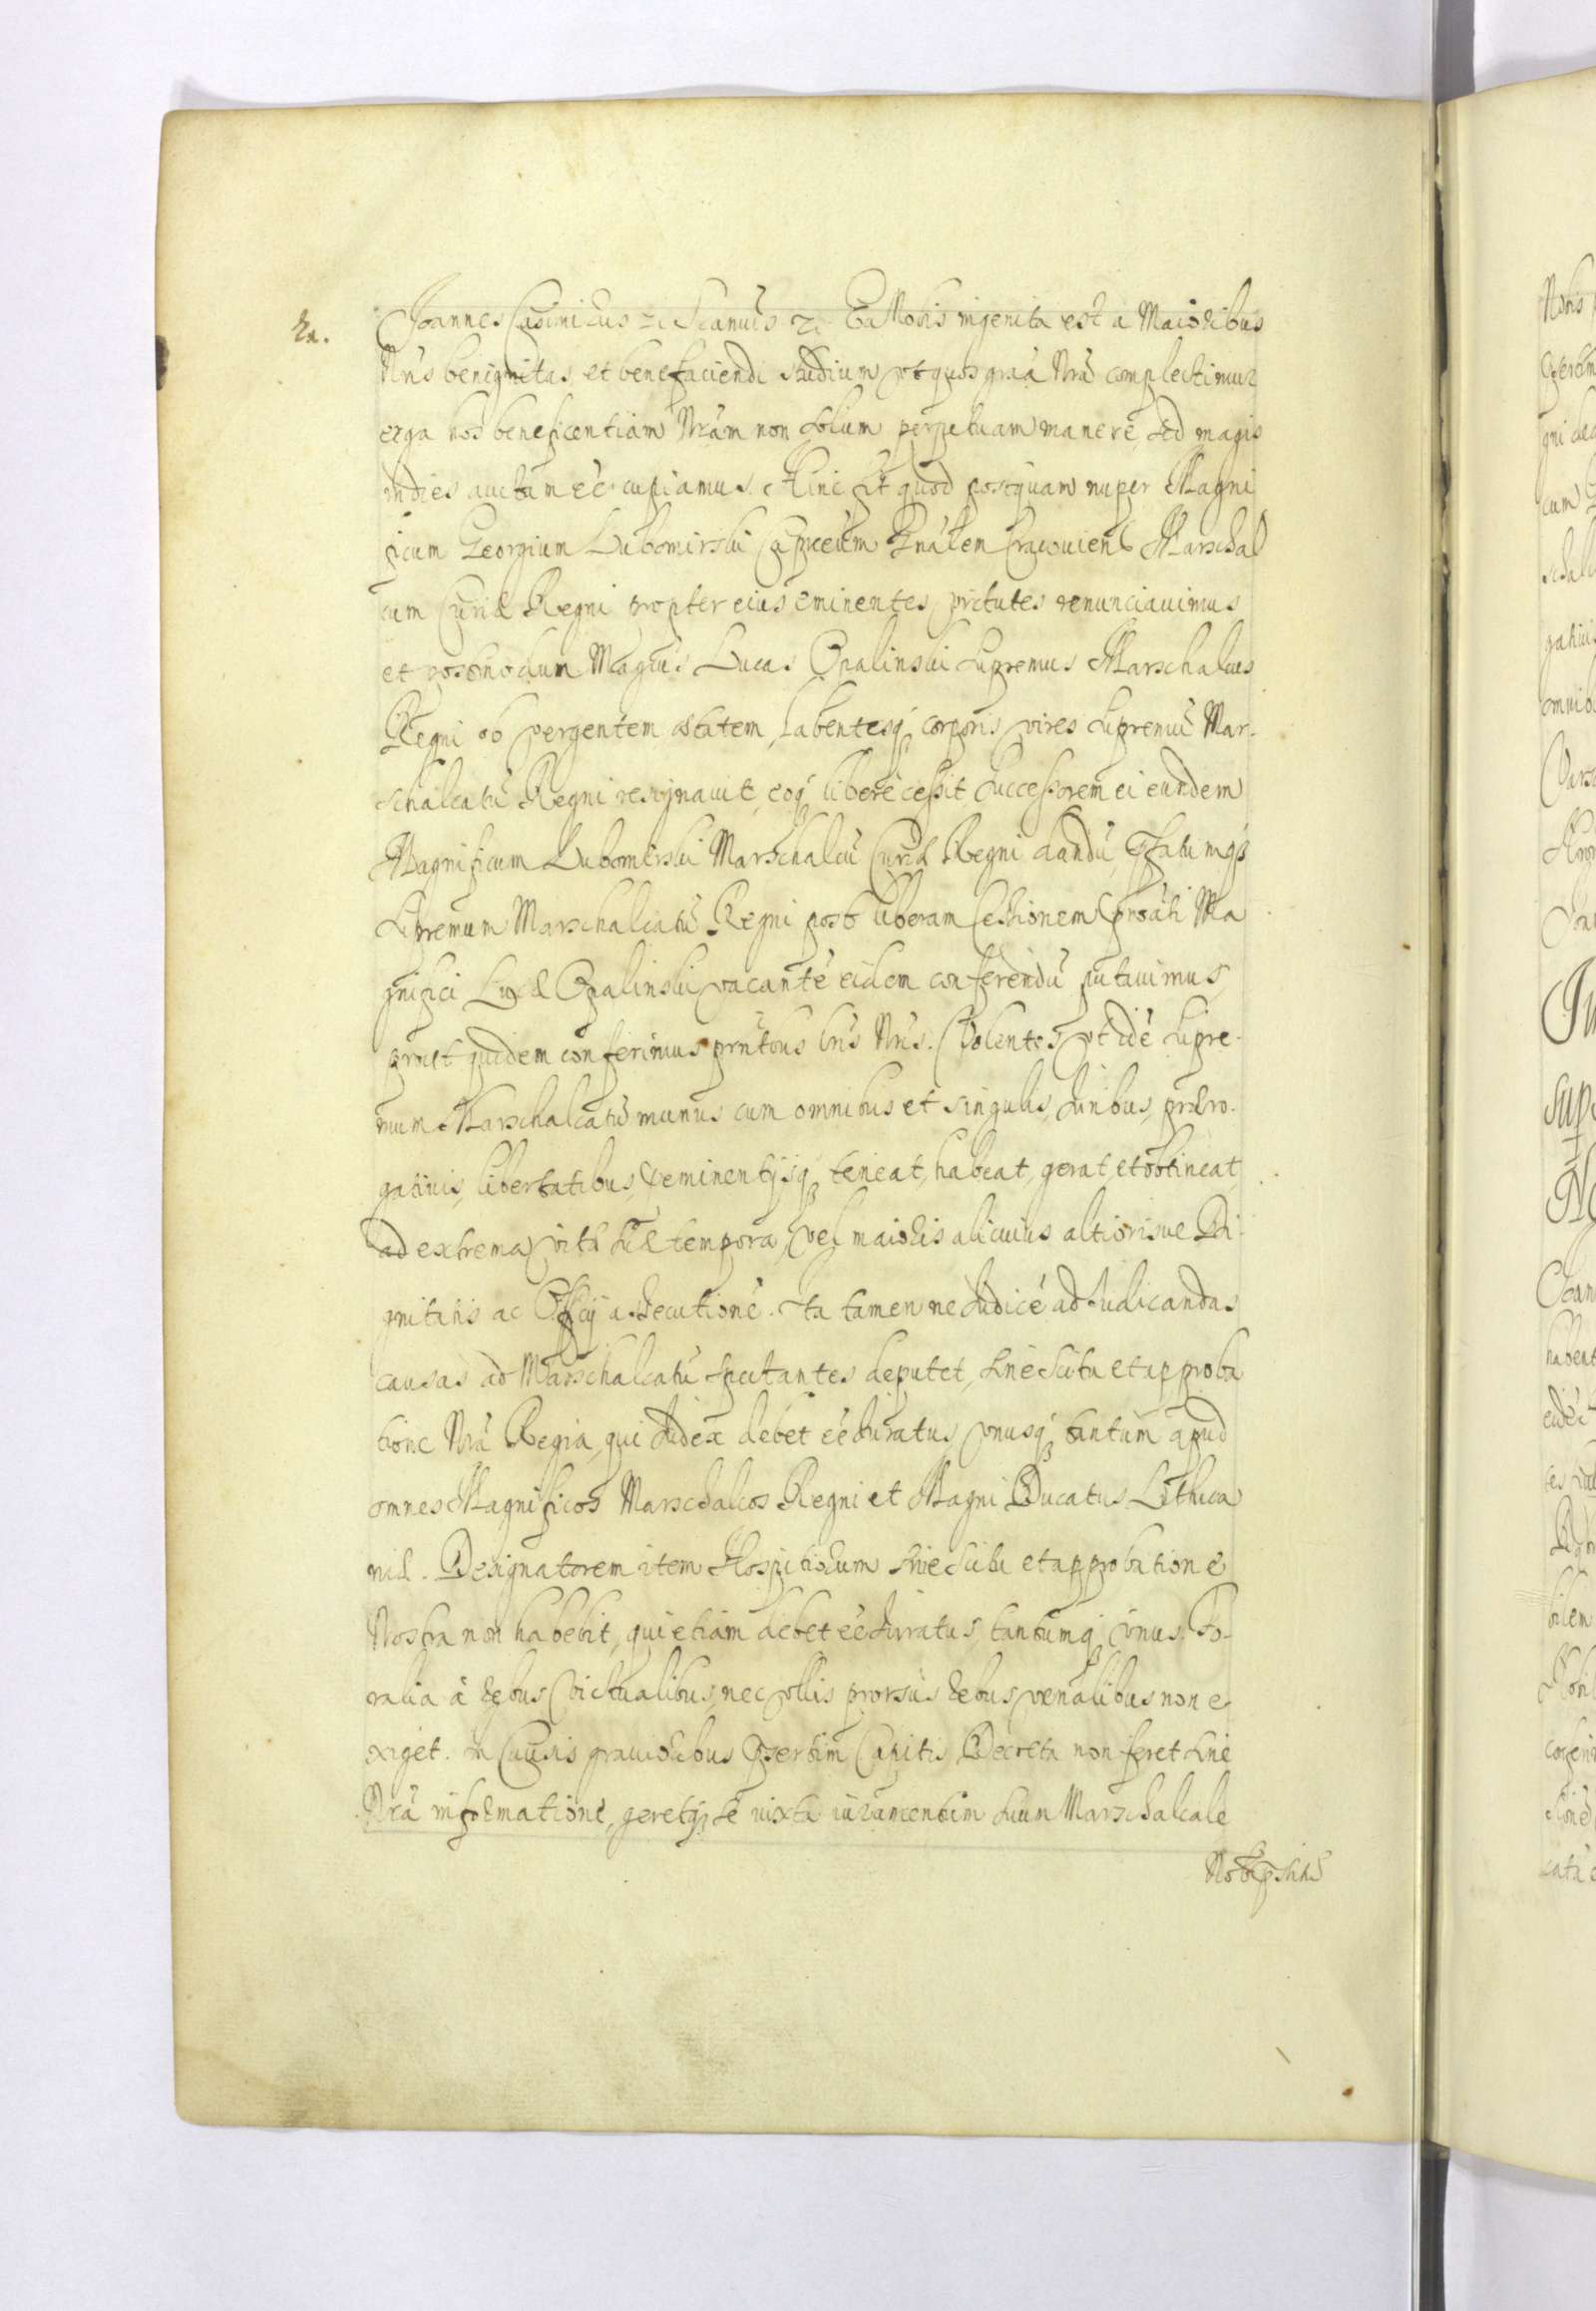 Ioannes Casimirus etc. Ea Nobis ingenita est a Maioribus
Nris benignitas et benefaciendi studium, vt quos graã Nrã complectimur
erga hos beneficentiam Nrãm non solum perpetuam manere, sed magis
indies auctam eẽ cupiamus. Hinc fit quod postquam nuper Magni
ficum Georgium Lubomirski Capneũm Gnãlem Cracouiens Marschal
cum Curiæ Regni propter eius eminentes virtutes renunciauimus
et postmodum Magcus Lucas Opalinski Supremus Marschalcus
Regni ob vergentem ætatem, labentesq corporis vires Supremũ Mar-
schalcatũ Regni resignauit, eoq libere cessit Successorem ei eundem
Magnificum Lubomirski Marschalcũ Curiæ Regni dandũ,
Supremum Marschalcatũ Regni post liberam Cessionem Ma
gnifici Lucæ Opalinski vacantẽ eidem conferendũ putauimus,
prout quidem conferimus prntbus lris Nris. Volentes vt idẽ Supre-
mum Marschalcatũs munus cum omnibus et singulis Iuribus, præro-
gatiuis, libertatibus, eminentijsq teneat, habeat, gerat, et obtineat
ad extrema vitæ suæ tempora, vel maioris alicuius altiorisue Di-
gnitatis ac Officij assecutionẽ. Ita tamen ne Iudicẽ ad Iudicandas
causas ad Marschalcatũ spectantes deputet, sine scitu et approba
tione Nrã Regia, qui Iudex debet eẽ Iuratus, vnusq tantum apud
omnes Magnificos Marschalcos Regni et Magni Ducatus Lithua
niæ. Designatorem item Hospitiorum sine scitu et approbatione
Nostra non habebit, qui etiam debet eẽ Iuratus, tantumq vnus. Fo-
ralia à rebus victualibus, nec vllis prorsus rebus venalibus non e
xiget. In Causis grauioribus Capitis Decreta non feret sine
Nrã informatione, geretq se iuxta iuramentum suum Marschalcale